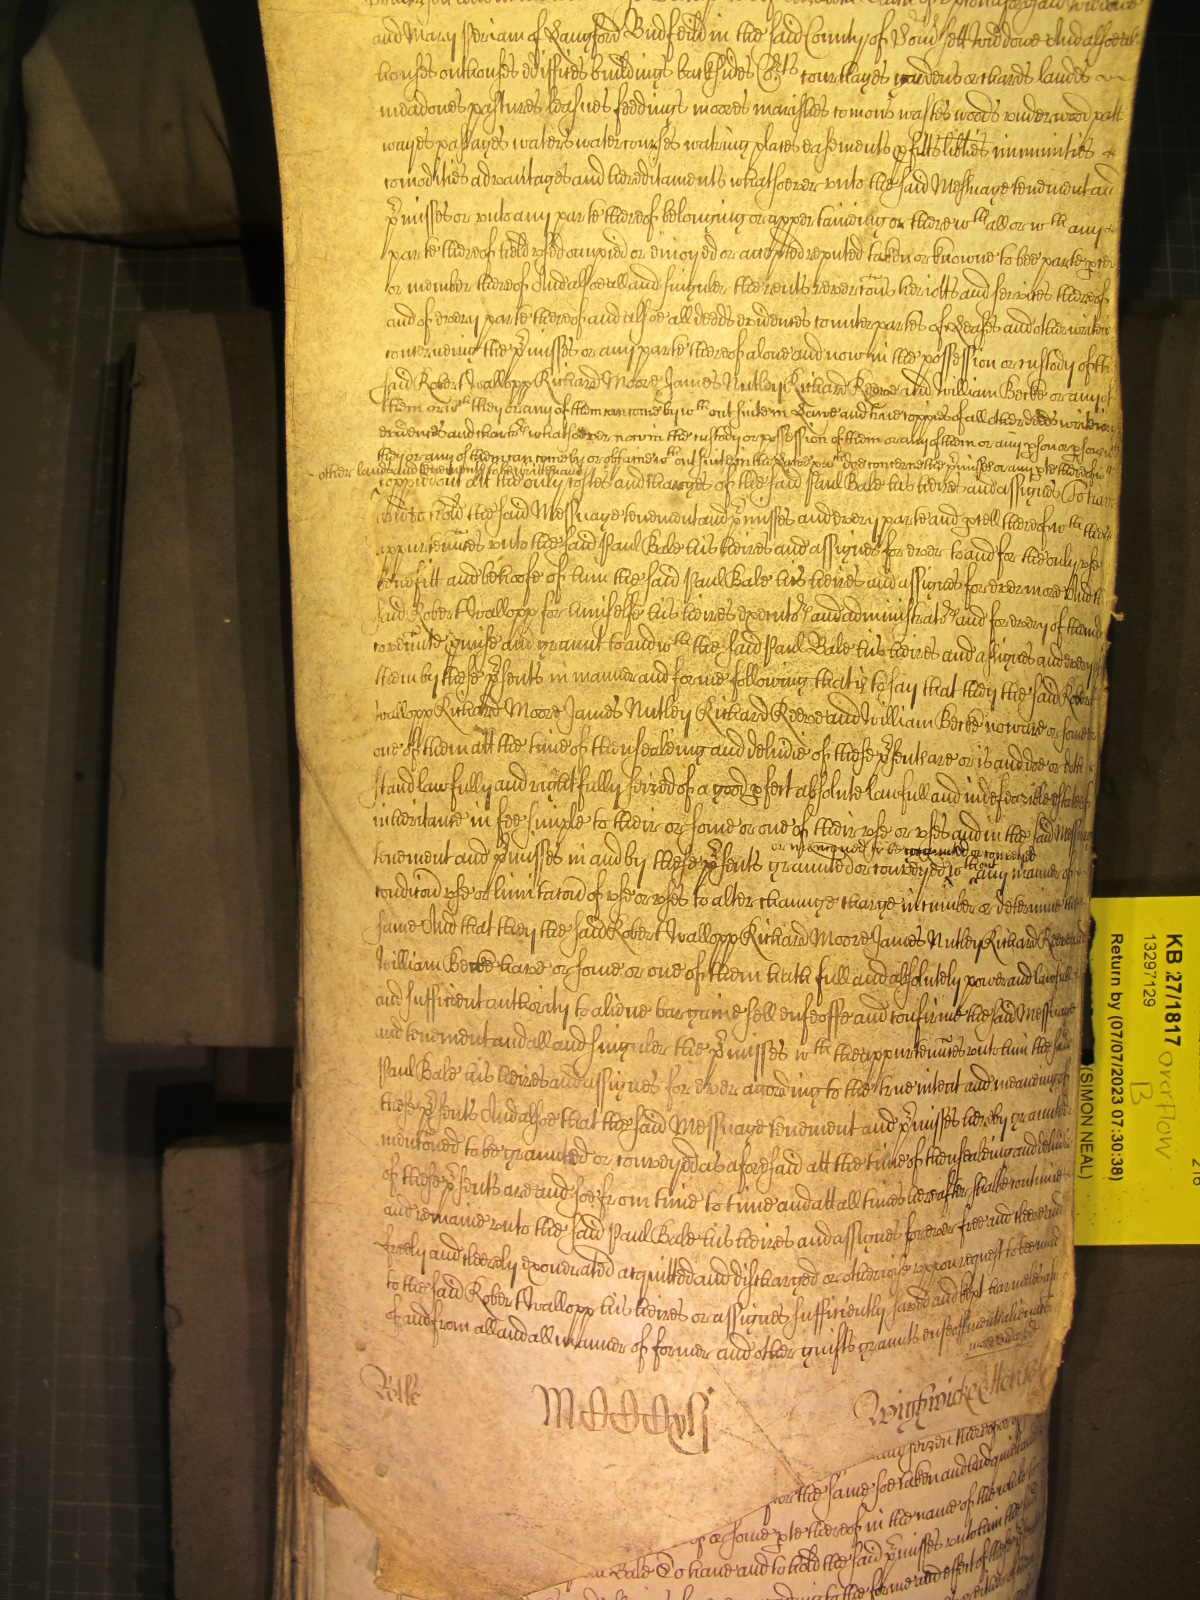 and Mary Periam of Langford Budfeild in the said County of Som'sett widdowe And alsoe all
houses outhouses edifices buildings backsides Co'ts courtlages gardens orchards landes
meadowes pastures leasues feedings moores marishes comons wastes woods underwood pathes
wayes passages waters watercourses watring places easements p'fitts lib'ties immunities
comodities advantages and hereditaments whatsoever unto the said Messuage tenement and
p'misses or unto any parte thereof belonging or appertaineing or therewth all or wth any
parte thereof held used occupied or enioyed or accepted reputed taken or knowne to bee parte p'cell
or member thereof And alsoe all and singuler the rents rev'cons heriotts and services thereof
and of every parte thereof and alsoe all deeds evidences counterparts of Leases and other writeings
concerneing the p'misses or any parte thereof alone and now in the possession or custody of the
said Robert Wallopp Richard Moore James Nutley Richard Reeve and William Becke or any of
them or wch they or any of them can come by wthout suite in Lawe and true coppies of all other deeds writeings
evidences and whatsoever now in the custody or possession of them or any of them or any p'son or p'sons wch
they or any of them can come by or obtaine wthout suite in the Lawe wch doe concerne the p'misses or any p'te thereof
other lands and tenements to bee written and
coppied out att the only costes and charges of the said Paul Bale his heires and assignes To have
and to hold the said Messuage tenement and p'misses and every parte and p'cell thereof wth their
appurten'nces unto the said Paul Bale his heires and assignes for ever to and for the only use
benefitt and behoofe of him the said Paul Bale his heires and assignes for evermore And the
said Robert Wallopp for himselfe his heires execut'rs and administrat'rs and for every of them doth
coven'nte p'mise and graunt to and wth the said Paul Bale his heires and assignes and every of
them by these p'sents in manner and forme following that is to say that they the said Robert
Wallopp Richard Moore James Nutley Richard Reeve and William Becke now are or some or
one of them att the time of thensealeing and deliv'ie of these p'sents are or is and doe or doth
stand lawfully and rightfully seized of a good p'fect absolute lawfull and indefeazible estate of
inheritance in fee simple to their or some or one of their use or uses and in the said Messuage
or menconed to be
tenement and p'misses in and by these p'sents graunted or conveyed wthout any manner of
condicon use or limitacon of use or uses to alter channge charge incumber or determine the
same And that they the said Robert Wallopp Richard Moore James Nutley Richard Reeve and
William Becke have or some or one of them hath full and absolutely power and lawfull
and sufficient authority to aliene bargaine sell enfeoffe and confirme the said Messuage
and tenement and all and singuler the p'misses wth theappurten'nces unto him the said
Paul Bale his heires and assignes for ever according to the true intent and meaneing of
these p'sents And alsoe that the said Messuage tenement and p'misses hereby graunted
menconed to be graunted or conveyed as aforesaid att the time of thensealeing and deliv'ie
of these p'sents are and soe from time to time and att all times hereafter shalbe continue
and remaine unto the said Paul Bale his heires and assignes for ever free and cleere and
freely and cleerely exonerated acquitted and discharged or otherwise uppon request to bee made
to the said Robert Wallopp his heires or assignes sufficiently saved and kept harmeles
of and from all and all manner of former and other guifts graunts enfeoffments alienacons
Rolle
Wightwicke
for the same soe taken and had
or some p'te thereof in the name of the whole
Bale To have and to hold the said p'misses unto him the said
to the forme and effect of these
KB 27/1817
13297129
Return by (07/07/2023 07:30:38)
(SIMON NEAL)
overflow
B